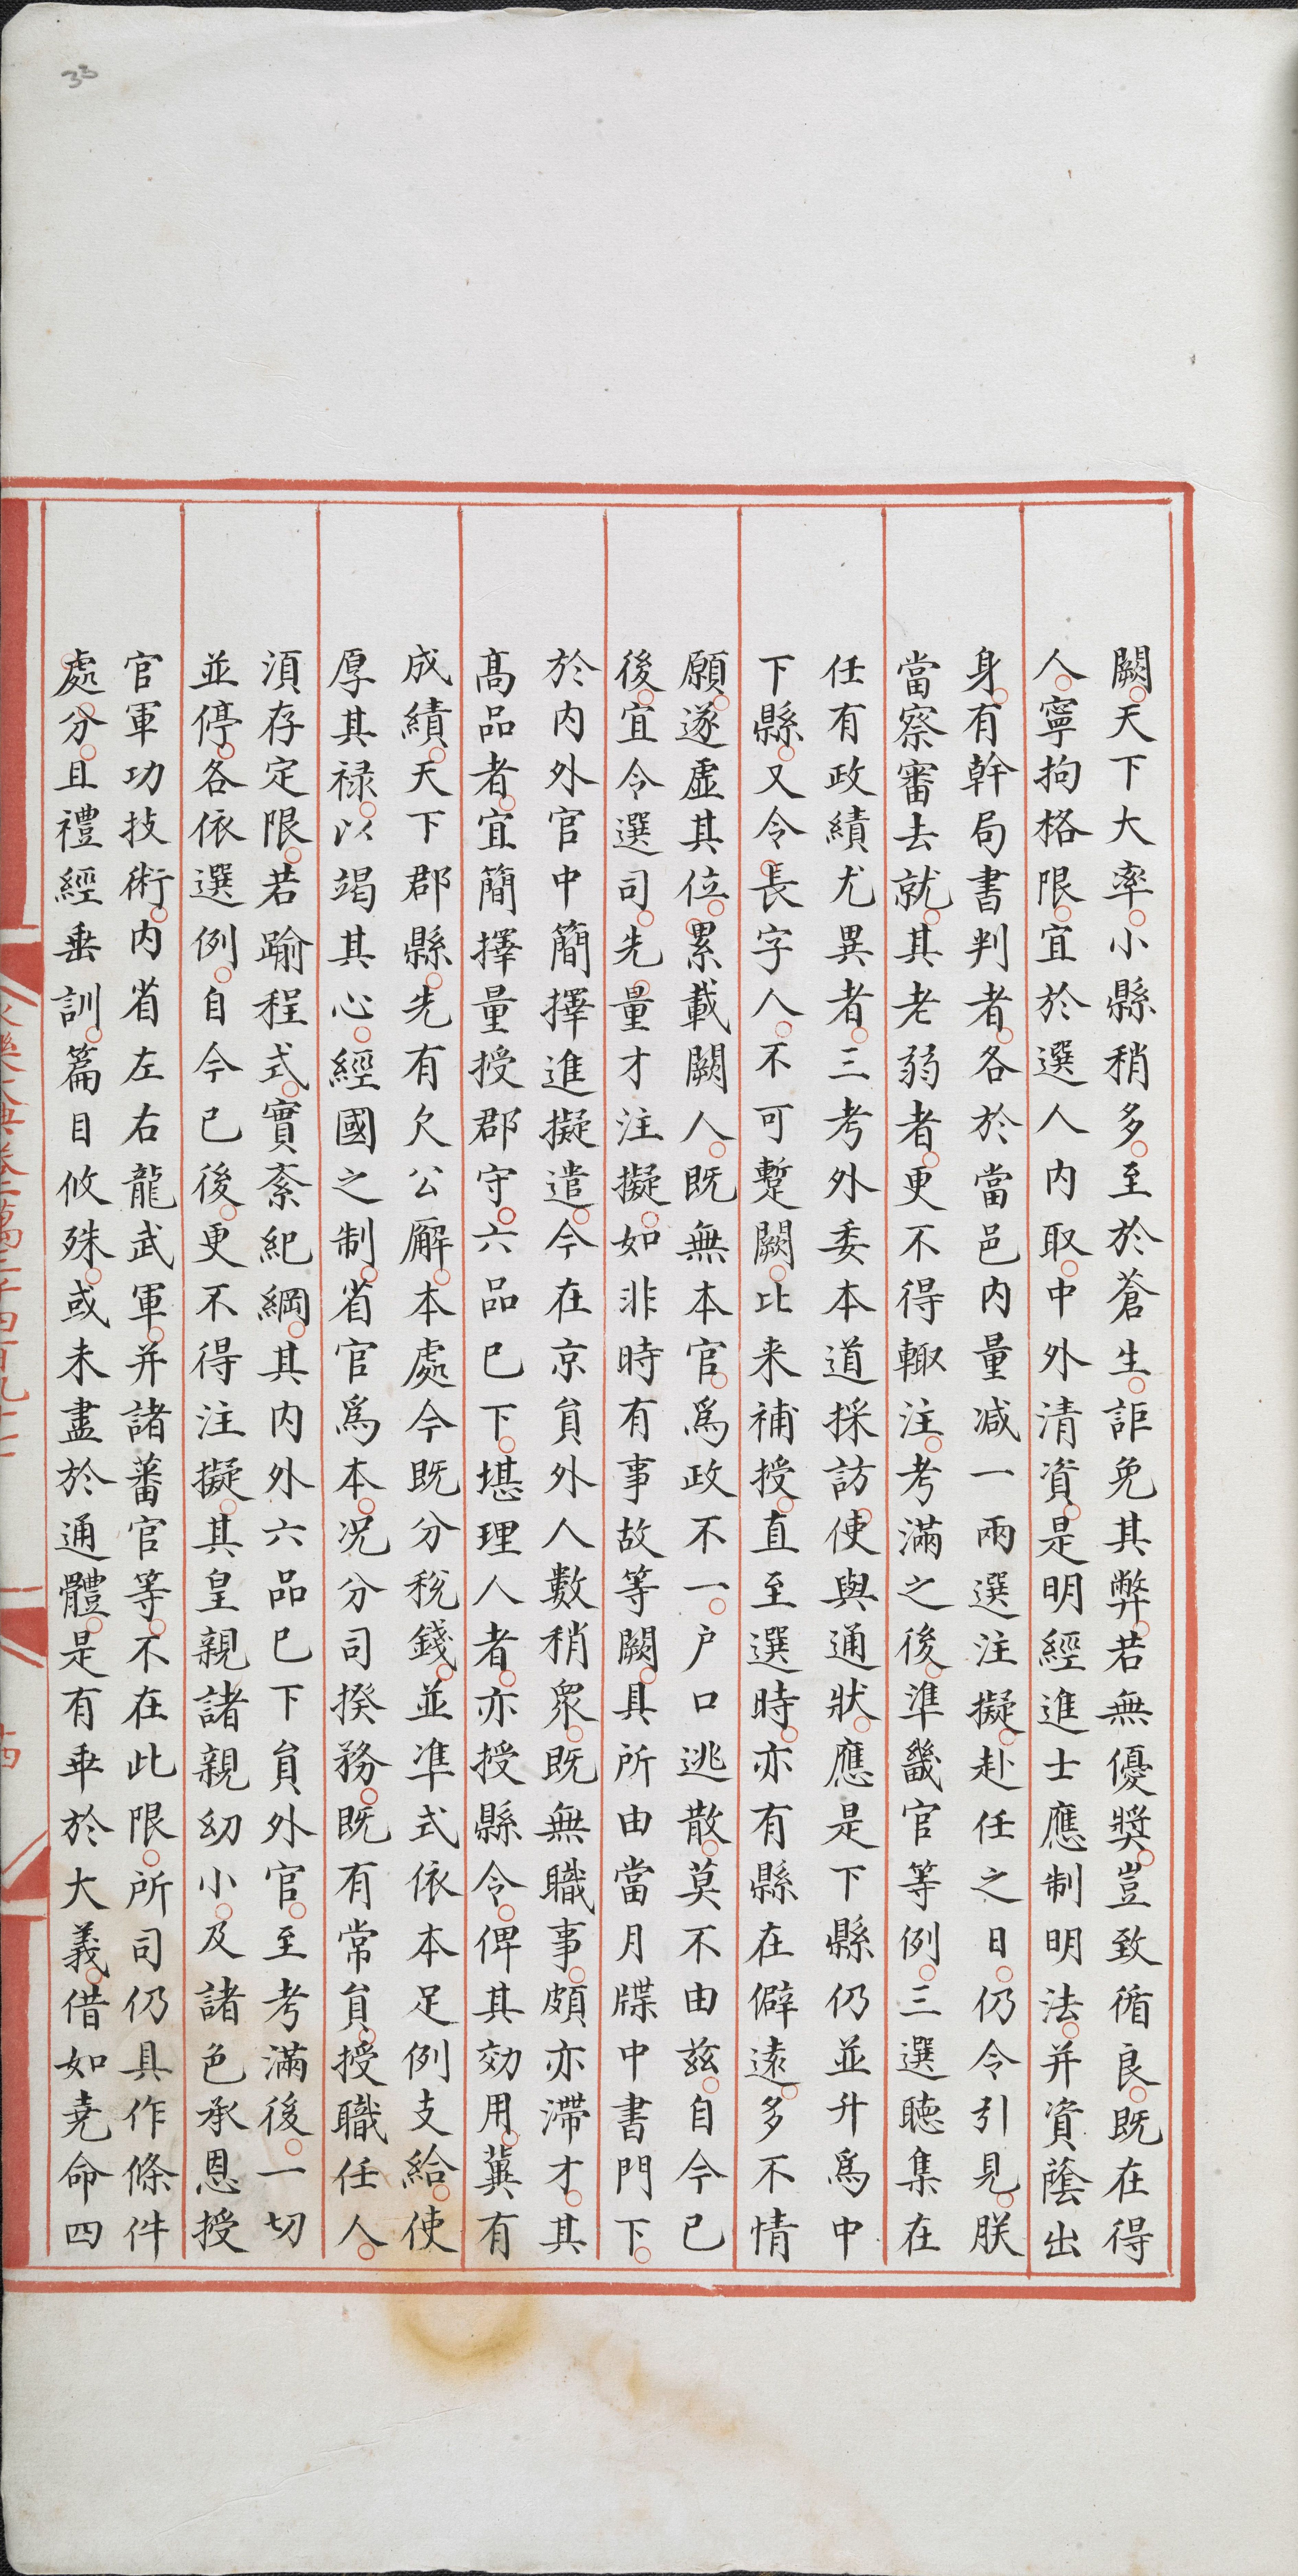 33
闕天下大率小縣稍多至於蒼生詎免其弊若無優奬豈致循良既在得
人寧拘格限宜於選人内取中外清資是明經進士應制明法并資蔭出
身有幹局書判者各於當邑内量减一兩選注擬赴任之日仍令引見朕
當察審去就其老弱者更不得輙注考滿之後準畿官等例三選聴集在
任有政績尤異者三考外委本道採訪使與通狀應是下縣仍並升爲中
下縣又令長字人不可蹔闕比来補授直至選時亦有縣在僻逺多不情
願遂虚其位累載闕人既無本官爲政不一户口逃散莫不由兹自今已
後宜令選司先量才注擬如非時有事故等闕具所由當月牒中書門下
於内外官中簡擇進擬遣今在京貟外人數稍衆既無職事頗亦滯才其
髙品者宜簡擇量授郡守六品已下堪理人者亦授縣令俾其効用冀有
成績天下郡縣先有欠公廨本處今既分稅錢並凖式依本足例支給使
厚其禄以竭其心經國之制省官爲本况分司揆務既有常貟授職任人
湏存定限若踰程式實紊紀綱其内外六品已下貟外官至考滿後一切
並停各依選例自今已後更不得注擬其皇親諸親幼小及諸色承恩授
官軍功技術内省左右龍武軍并諸蕃官等不在此限所司仍具作條件
處分且禮經垂訓篇目攸殊或未盡於通體是有乖於大義借如堯命四